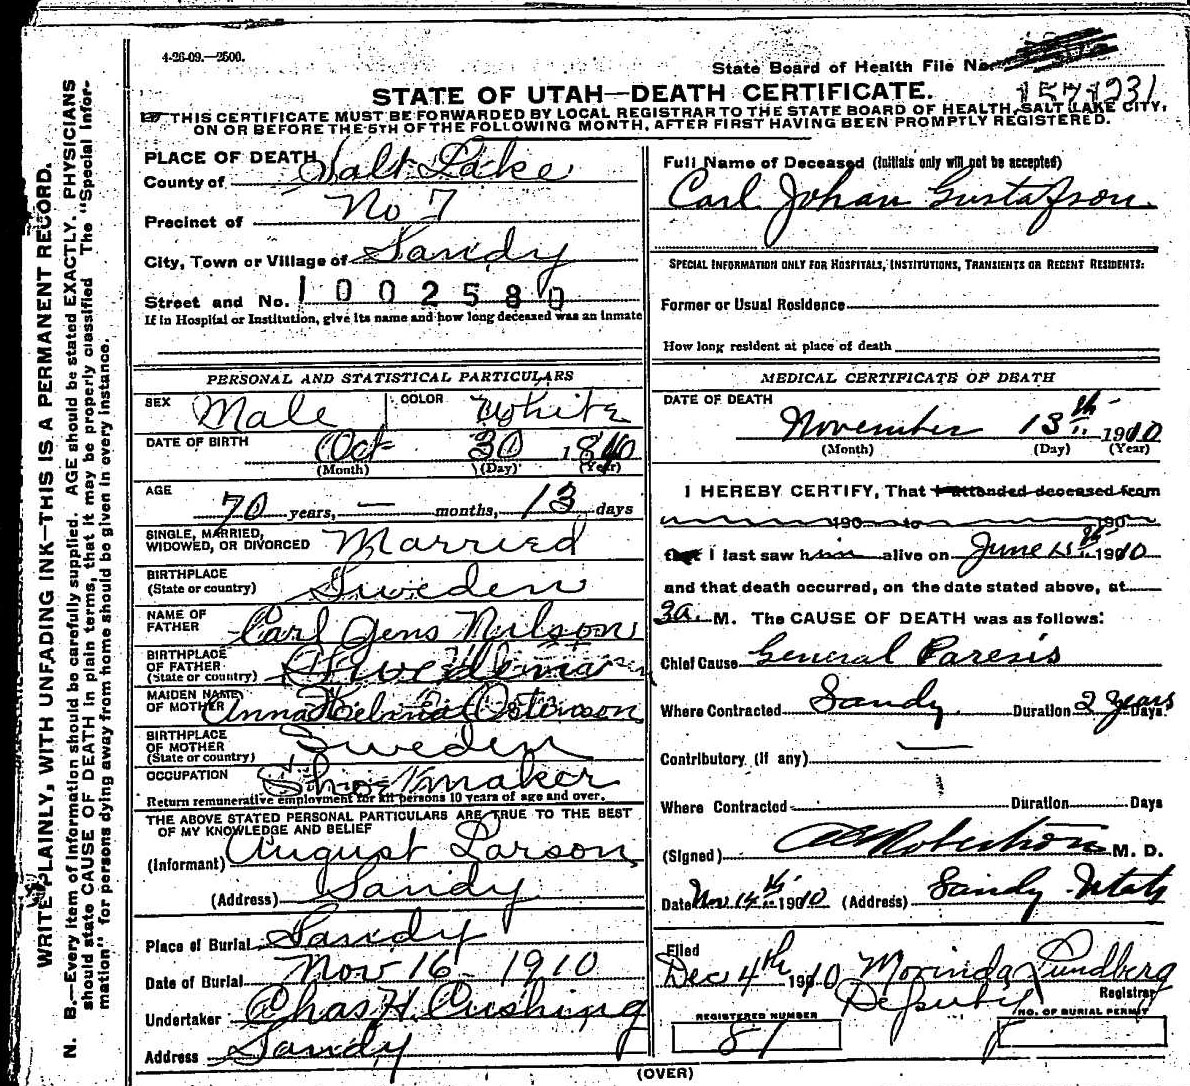 4-26-09.—2500.
State Board of Health File No.
1571231
STATE OF UTAH—DEATH CERTIFICATE.
THIS CERTIFICATE MUST BE FORWARDED BY LOCAL REGISTRAR TO THE STATE BOARD OF HEALTH, SALT LAKE CITY,
ON OR BEFORE THE 5TH OF THE FOLLOWING MONTH, AFTER FIRST HAVING BEEN PROMPTLY REGISTERED.
WRITE PLAINLY, WITH UNFADING INK—THIS IS A PERMANENT RECORD.
N. B.—Every item of information should be carefully supplied. AGE should be stated EXACTLY. PHYSICIANS
should state CAUSE OF DEATH in plain terms, that it may be properly classified The "Special Infor-
mation" for persons dying away from home should be given in every instance.
PLACE OF DEATH
County of Salt Lake
Precinct of No 7
City, Town or Village of Sandy
Street and No. 1002580
If in Hospital or Institution, give its name and how long deceased was an inmate
PERSONAL AND STATISTICAL PARTICULARS
SEX Male COLOR White
DATE OF BIRTH Oct 30 1840
(Month) (Day) (Year)
AGE 70 years, — months, 13 days
SINGLE, MARRIED,
WIDOWED, OR DIVORCED Married
BIRTHPLACE
(State or country) Sweden
NAME OF
FATHER Carl Jens Nilson
BIRTHPLACE
OF FATHER
(State or country)
MAIDEN NAME
OF MOTHER Anna
BIRTHPLACE
OF MOTHER
(State or country) Sweden
OCCUPATION Shoemaker
Return remunerative employment for all persons 10 years of age and over.
THE ABOVE STATED PERSONAL PARTICULARS ARE TRUE TO THE BEST
OF MY KNOWLEDGE AND BELIEF
(Informant) August Larson
(Address) Sandy
Place of Burial Sandy
Date of Burial Nov 16 - 1910
Undertaker Chas H. Cushing
Address Sandy
Full Name of Deceased (Initials only will not be accepted)
Carl Johan Gustafson
SPECIAL INFORMATION ONLY FOR HOSPITALS, INSTITUTIONS, TRANSIENTS OR RECENT RESIDENTS:
Former or Usual Residence
How long resident at place of death
MEDICAL CERTIFICATE OF DEATH
DATE OF DEATH
November 13th 1910
(Month) (Day) (Year)
I HEREBY CERTIFY, That I attended deceased from
190 to 190
that I last saw him alive on June 1910
and that death occurred, on the date stated above, at
3a. M. The CAUSE OF DEATH was as follows:
Chief Cause General Paresis
Where Contracted Sandy Duration 2 years Days
Contributory (if any) —
Where Contracted Duration Days
(Signed) Robertson M. D.
Date Nov 14th 1910 (Address) Sandy Utah
Filed
Dec 4th 1910 Morinda Lundberg
Deputy Registrar
REGISTERED NUMBER
87
NO. OF BURIAL PERMIT
(OVER)